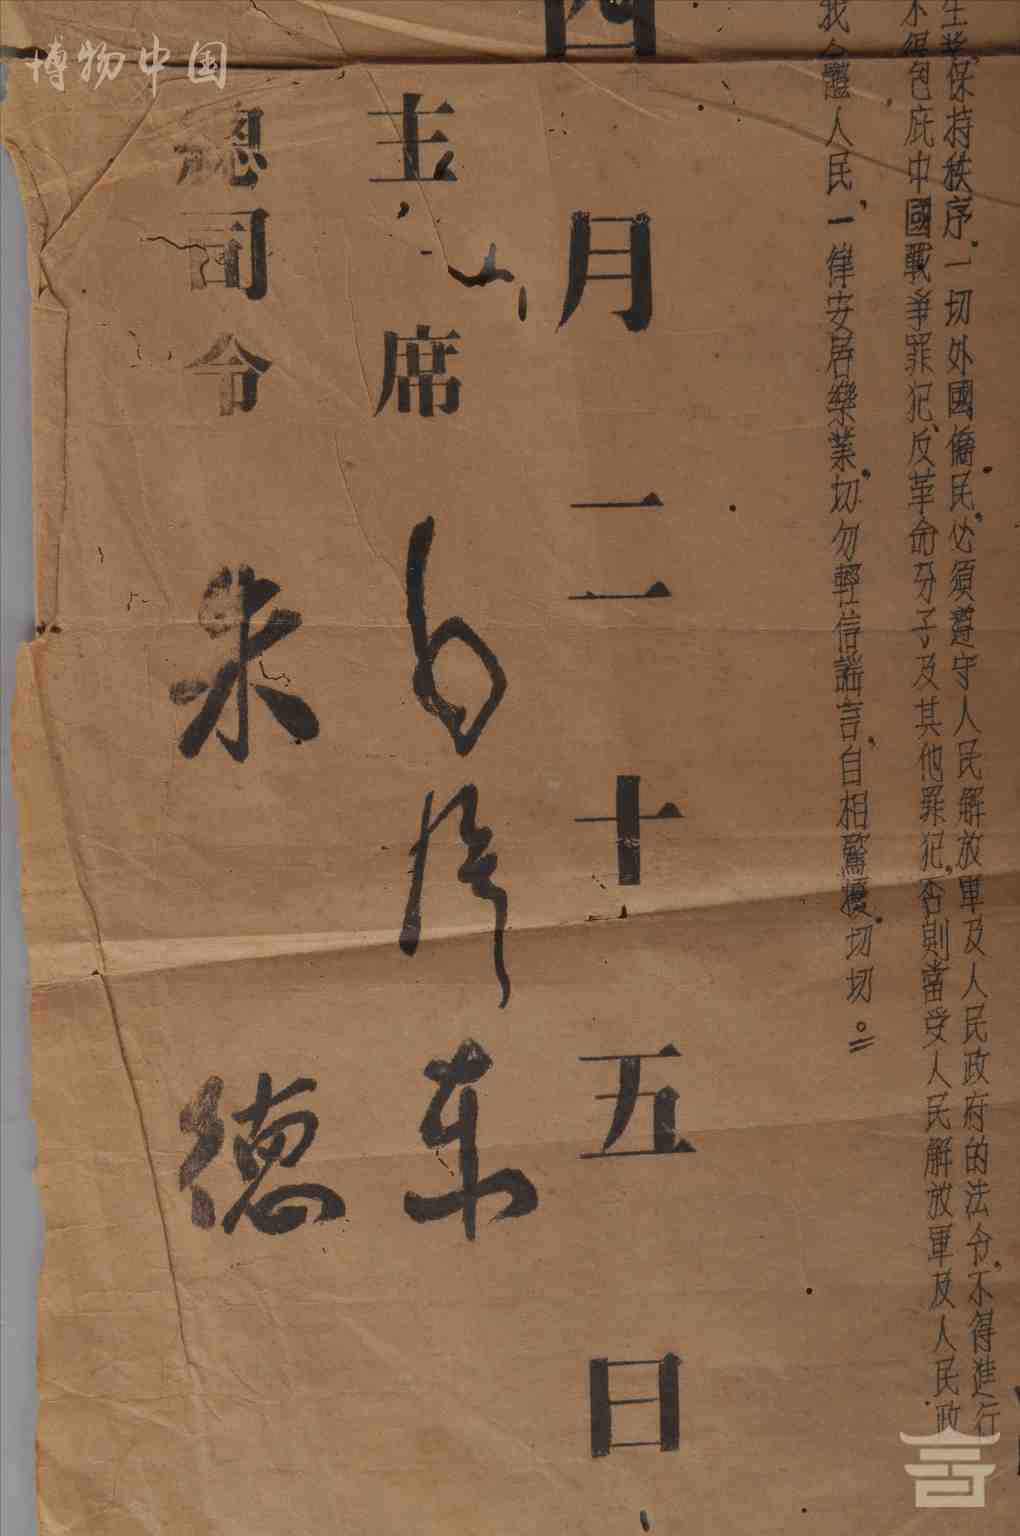 生業保持秩序、一切外國僑民,必須遵守人民解放軍及人民政府的法令,不得進行
不得包庇中國戰爭罪犯、反革命分子、及其他罪犯,否則當受人民解放軍及人民政
我全體人民,一律安居樂業,切勿輕信謠言,自相驚擾,切切。
四月二十五日
主席 毛澤东
總司令 朱德
博物中国